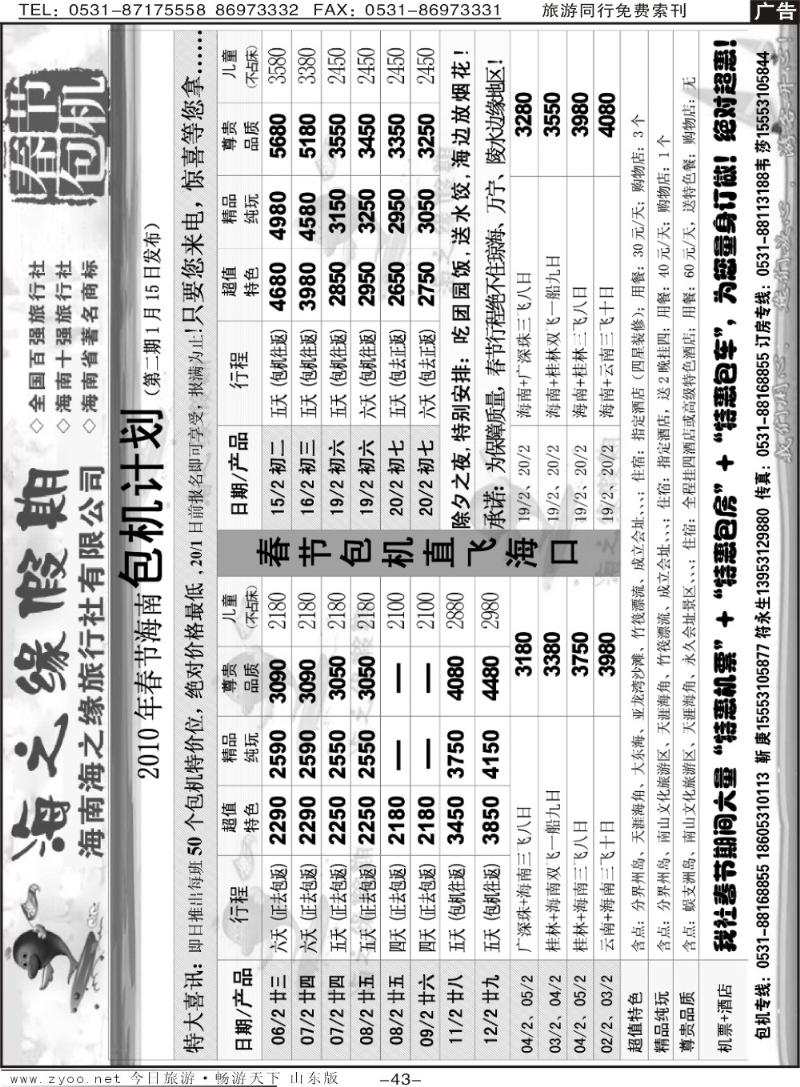 TEL: 0531-87175558 86973332 FAX: 0531-86973331 旅游同行免费索刊 广告
海之缘假期
海南海之缘旅行社有限公司
◇全国百强旅行社
◇海南十强旅行社
◇海南省著名商标
春节包机
2010年春节海南包机计划(第二期1月15日发布)
特大喜讯：即日推出每班50个包机特价位，绝对价格最低，20/1日前报名即可享受，报满为止!只要您来电，惊喜等您拿……
日期/产品 行程 超值特色 精品纯玩 尊贵品质 儿童(不占床)
06/2 廿三 六天(正去包返) 2290 2590 3090 2180
07/2 廿四 六天(正去包返) 2290 2590 3090 2180
07/2 廿四 五天(正去包返) 2250 2550 3050 2180
08/2 廿五 五天(正去包返) 2250 2550 3050 2180
08/2 廿五 四天(正去包返) 2180 — — 2100
09/2 廿六 四天(正去包返) 2180 — — 2100
11/2 廿八 五天(包机往返) 3450 3750 4080 2880
12/2 廿九 五天(包机往返) 3850 4150 4480 2980
04/2、05/2 广深珠+海南三飞八日 3180
03/2、04/2 桂林+海南双飞一船九日 3380
04/2、05/2 桂林+海南三飞八日 3750
02/2、03/2 云南+海南三飞十日 3980
春节包机直飞海口
日期/产品 行程 超值特色 精品纯玩 尊贵品质 儿童(不占床)
15/2 初二 五天(包机往返) 4680 4980 5680 3580
16/2 初三 五天(包机往返) 3980 4580 5180 3380
19/2 初六 五天(包机往返) 2850 3150 3550 2450
19/2 初六 六天(包机往返) 2950 3250 3450 2450
20/2 初七 五天(包去正返) 2650 2950 3350 2450
20/2 初七 六天(包去正返) 2750 3050 3250 2450
除夕之夜,特别安排：吃团园饭,送水饺,海边放烟花!
承诺：为保障质量，春节行程绝不住琼海、万宁、陵水边缘地区!
19/2、20/2 海南+广深珠三飞八日 3280
19/2、20/2 海南+桂林双飞一船九日 3550
19/2、20/2 海南+桂林三飞八日 3980
19/2、20/2 海南+云南三飞十日 4080
超值特色 含点：分界州岛、天涯海角、大东海、亚龙湾沙滩、竹筏漂流、成立会址、、、；住宿：指定酒店（四星装修）；用餐：30元/天；购物店：3个
精品纯玩 含点：分界州岛、南山文化旅游区、天涯海角、竹筏漂流、成立会址、、、；住宿：指定酒店，送2晚挂四；用餐：40元/天；购物店：1个
尊贵品质 含点：蜈支洲岛、南山文化旅游区、天涯海角、永久会址景区、、、；住宿：全程挂四酒店或高级特色酒店；用餐：60元/天，送特色餐；购物店：无
机票+酒店 我社春节期间大量“特惠机票”+“特惠包房”+“特惠包车”，为您量身订做！绝对超惠！
包机专线：0531-88168855 18605310113 靳庚15553105877 符永生13953129880 传真：0531-88168855 订房专线：0531-88113188韦莎15553105844
www.zyoo.net 今日旅游·畅游天下 山东版 -43-